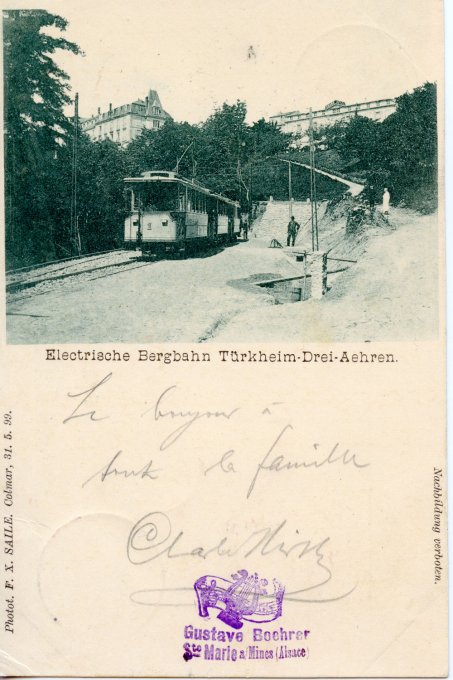 Electrische Bergbahn Türkheim-Drei-Aehren.
Le bonjour à
toute la famille
Photot. F. X. SAILE. Colmar, 31. 5. 99.
Nachbildung verboten.
Gustave Boehrer
Ste Marie a/Mines (Alsace)